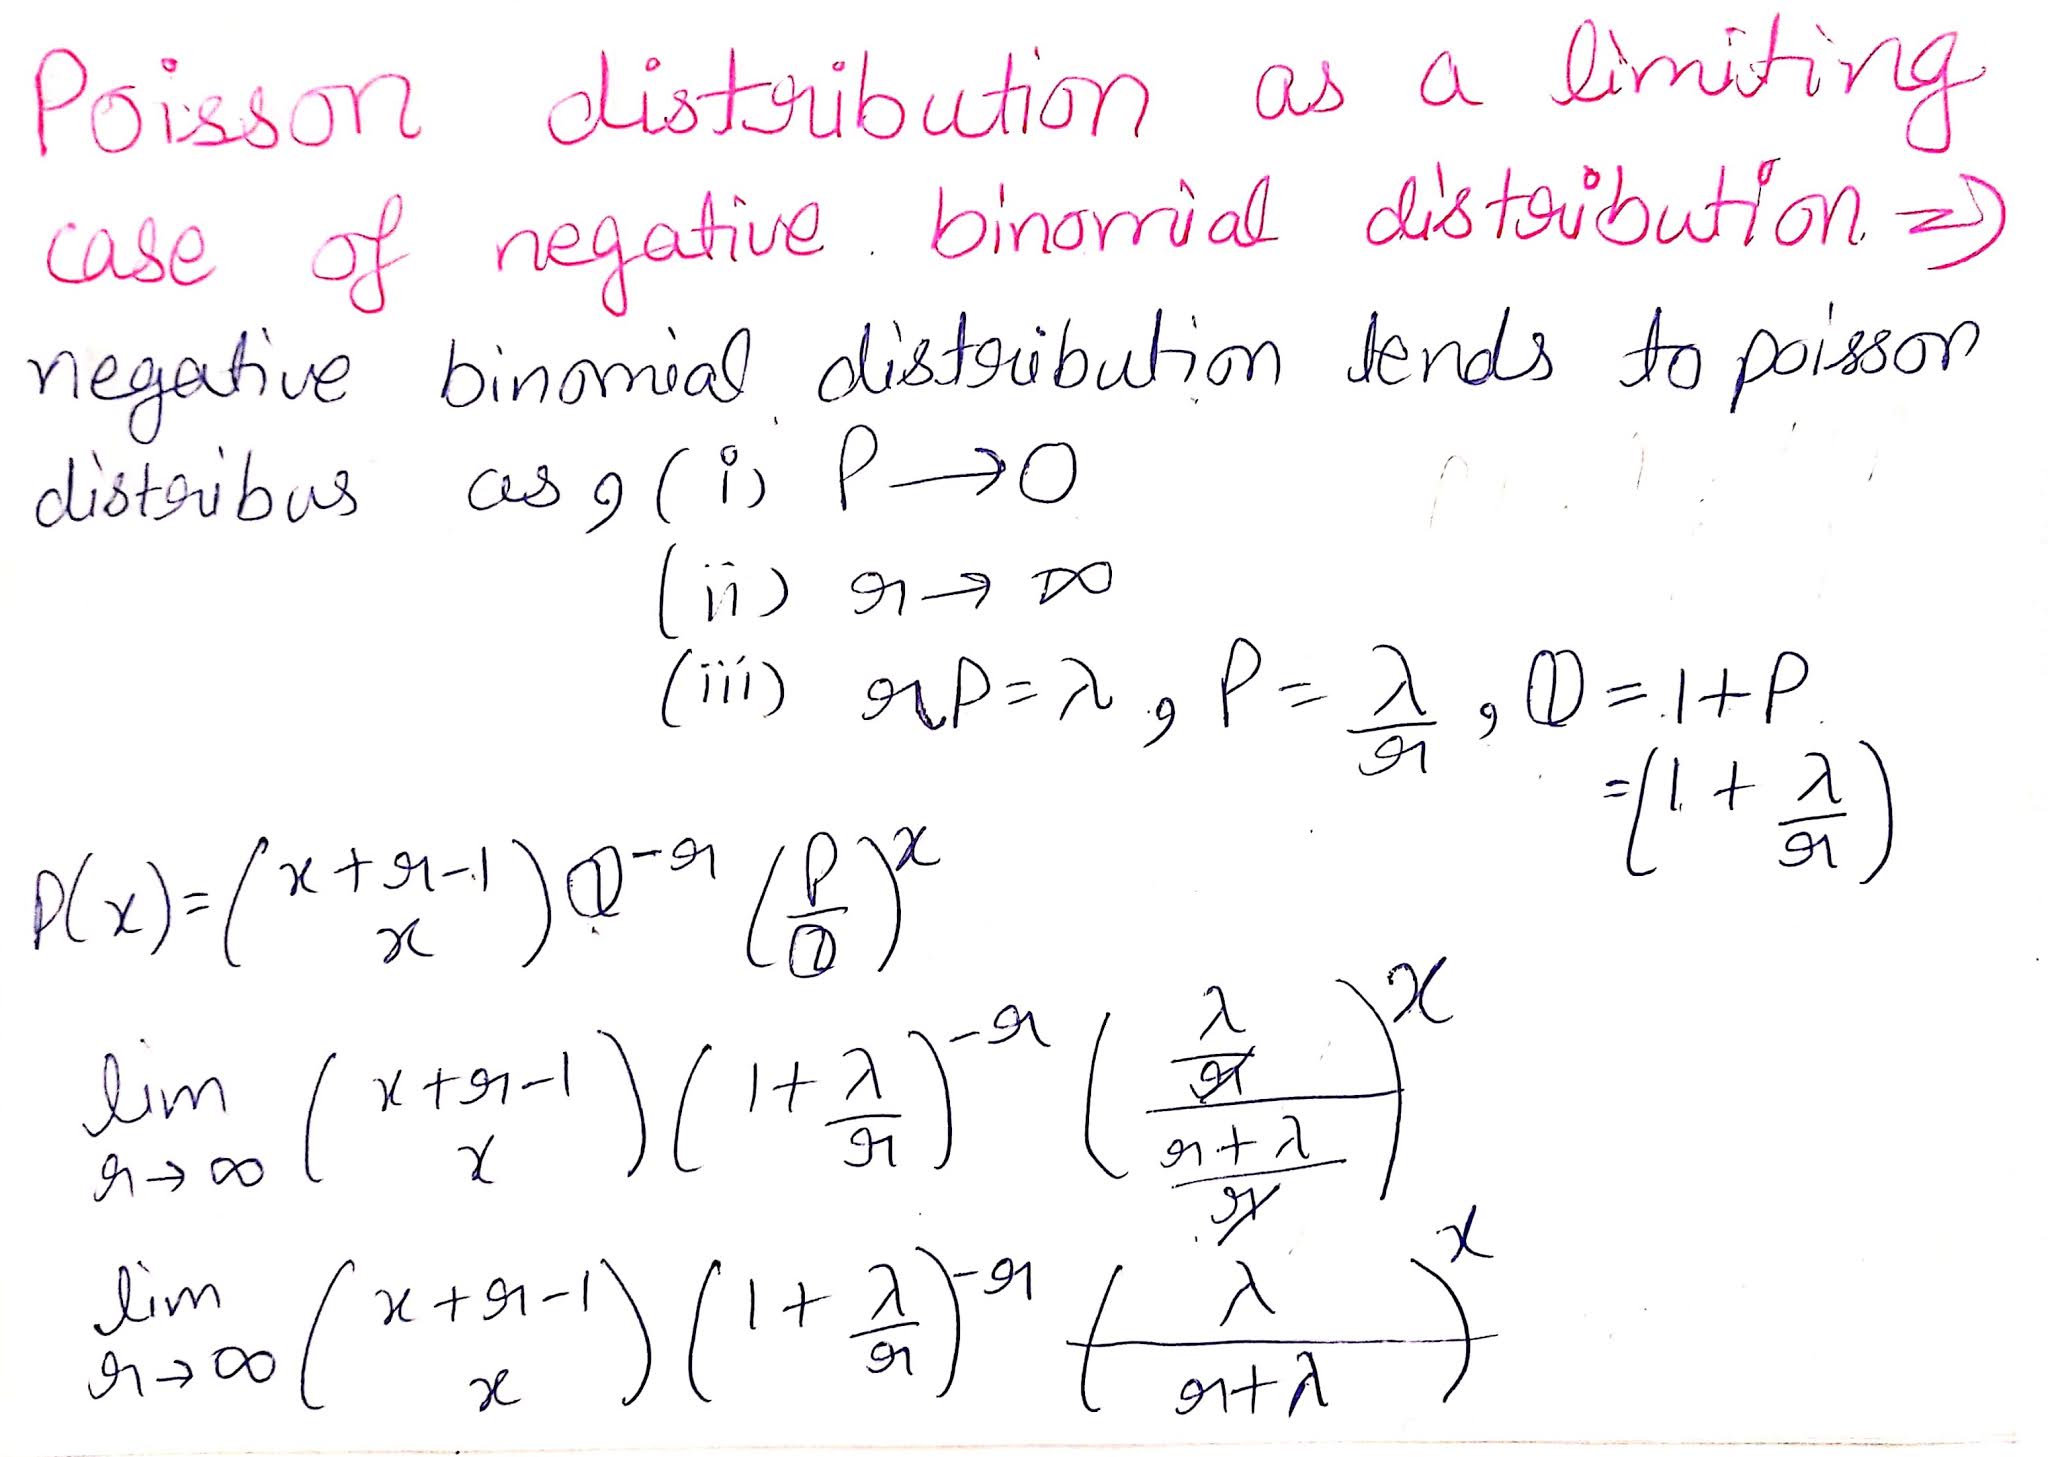 Poisson distribution as a limiting
case of negative binomial distribution ⇒
negative binomial distribution tends to poisson
distribus as, (i) P → 0
(ii) r → ∞
(iii) rP = λ, P = λ/r, Q = 1 + P
= (1 + λ/r)
P(x) = (x+r-1 x) Q^-r (P/Q)^x
lim r→∞ (x+r-1 x) (1 + λ/r)^-r ((λ/r)/((r+λ)/r))^x
lim r→∞ (x+r-1 x) (1 + λ/r)^-r (λ/(r+λ))^x